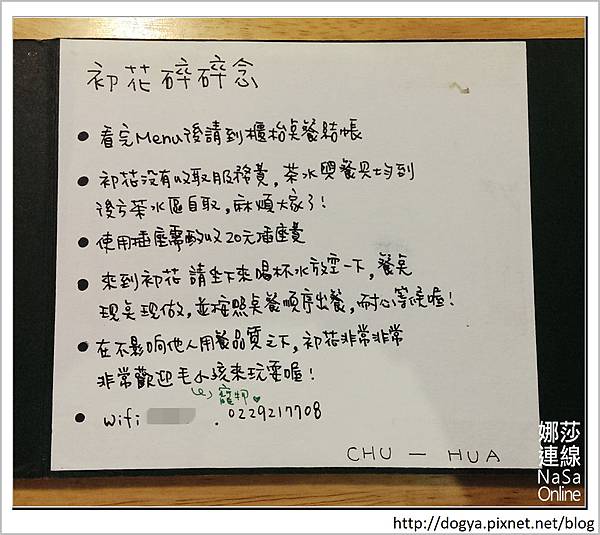 初花碎碎念
● 看完Menu後請到櫃枱桌餐結帳
● 初花沒有收取服務費,茶水與餐具均到
後方茶水區自取,麻煩大家了!
● 使用插座需酌收20元插座費
● 來到初花 請坐下來喝杯水放空一下,餐桌
現桌現做,並按照桌餐順序出餐,耐心等候喔!
● 在不影响他人用餐品質之下,初花非常非常
非常歡迎毛小孩來玩耍喔!
寵物
● wifi . 0229217708
CHU — HUA
娜莎
連線
NaSa
Online
http://dogya.pixnet.net/blog